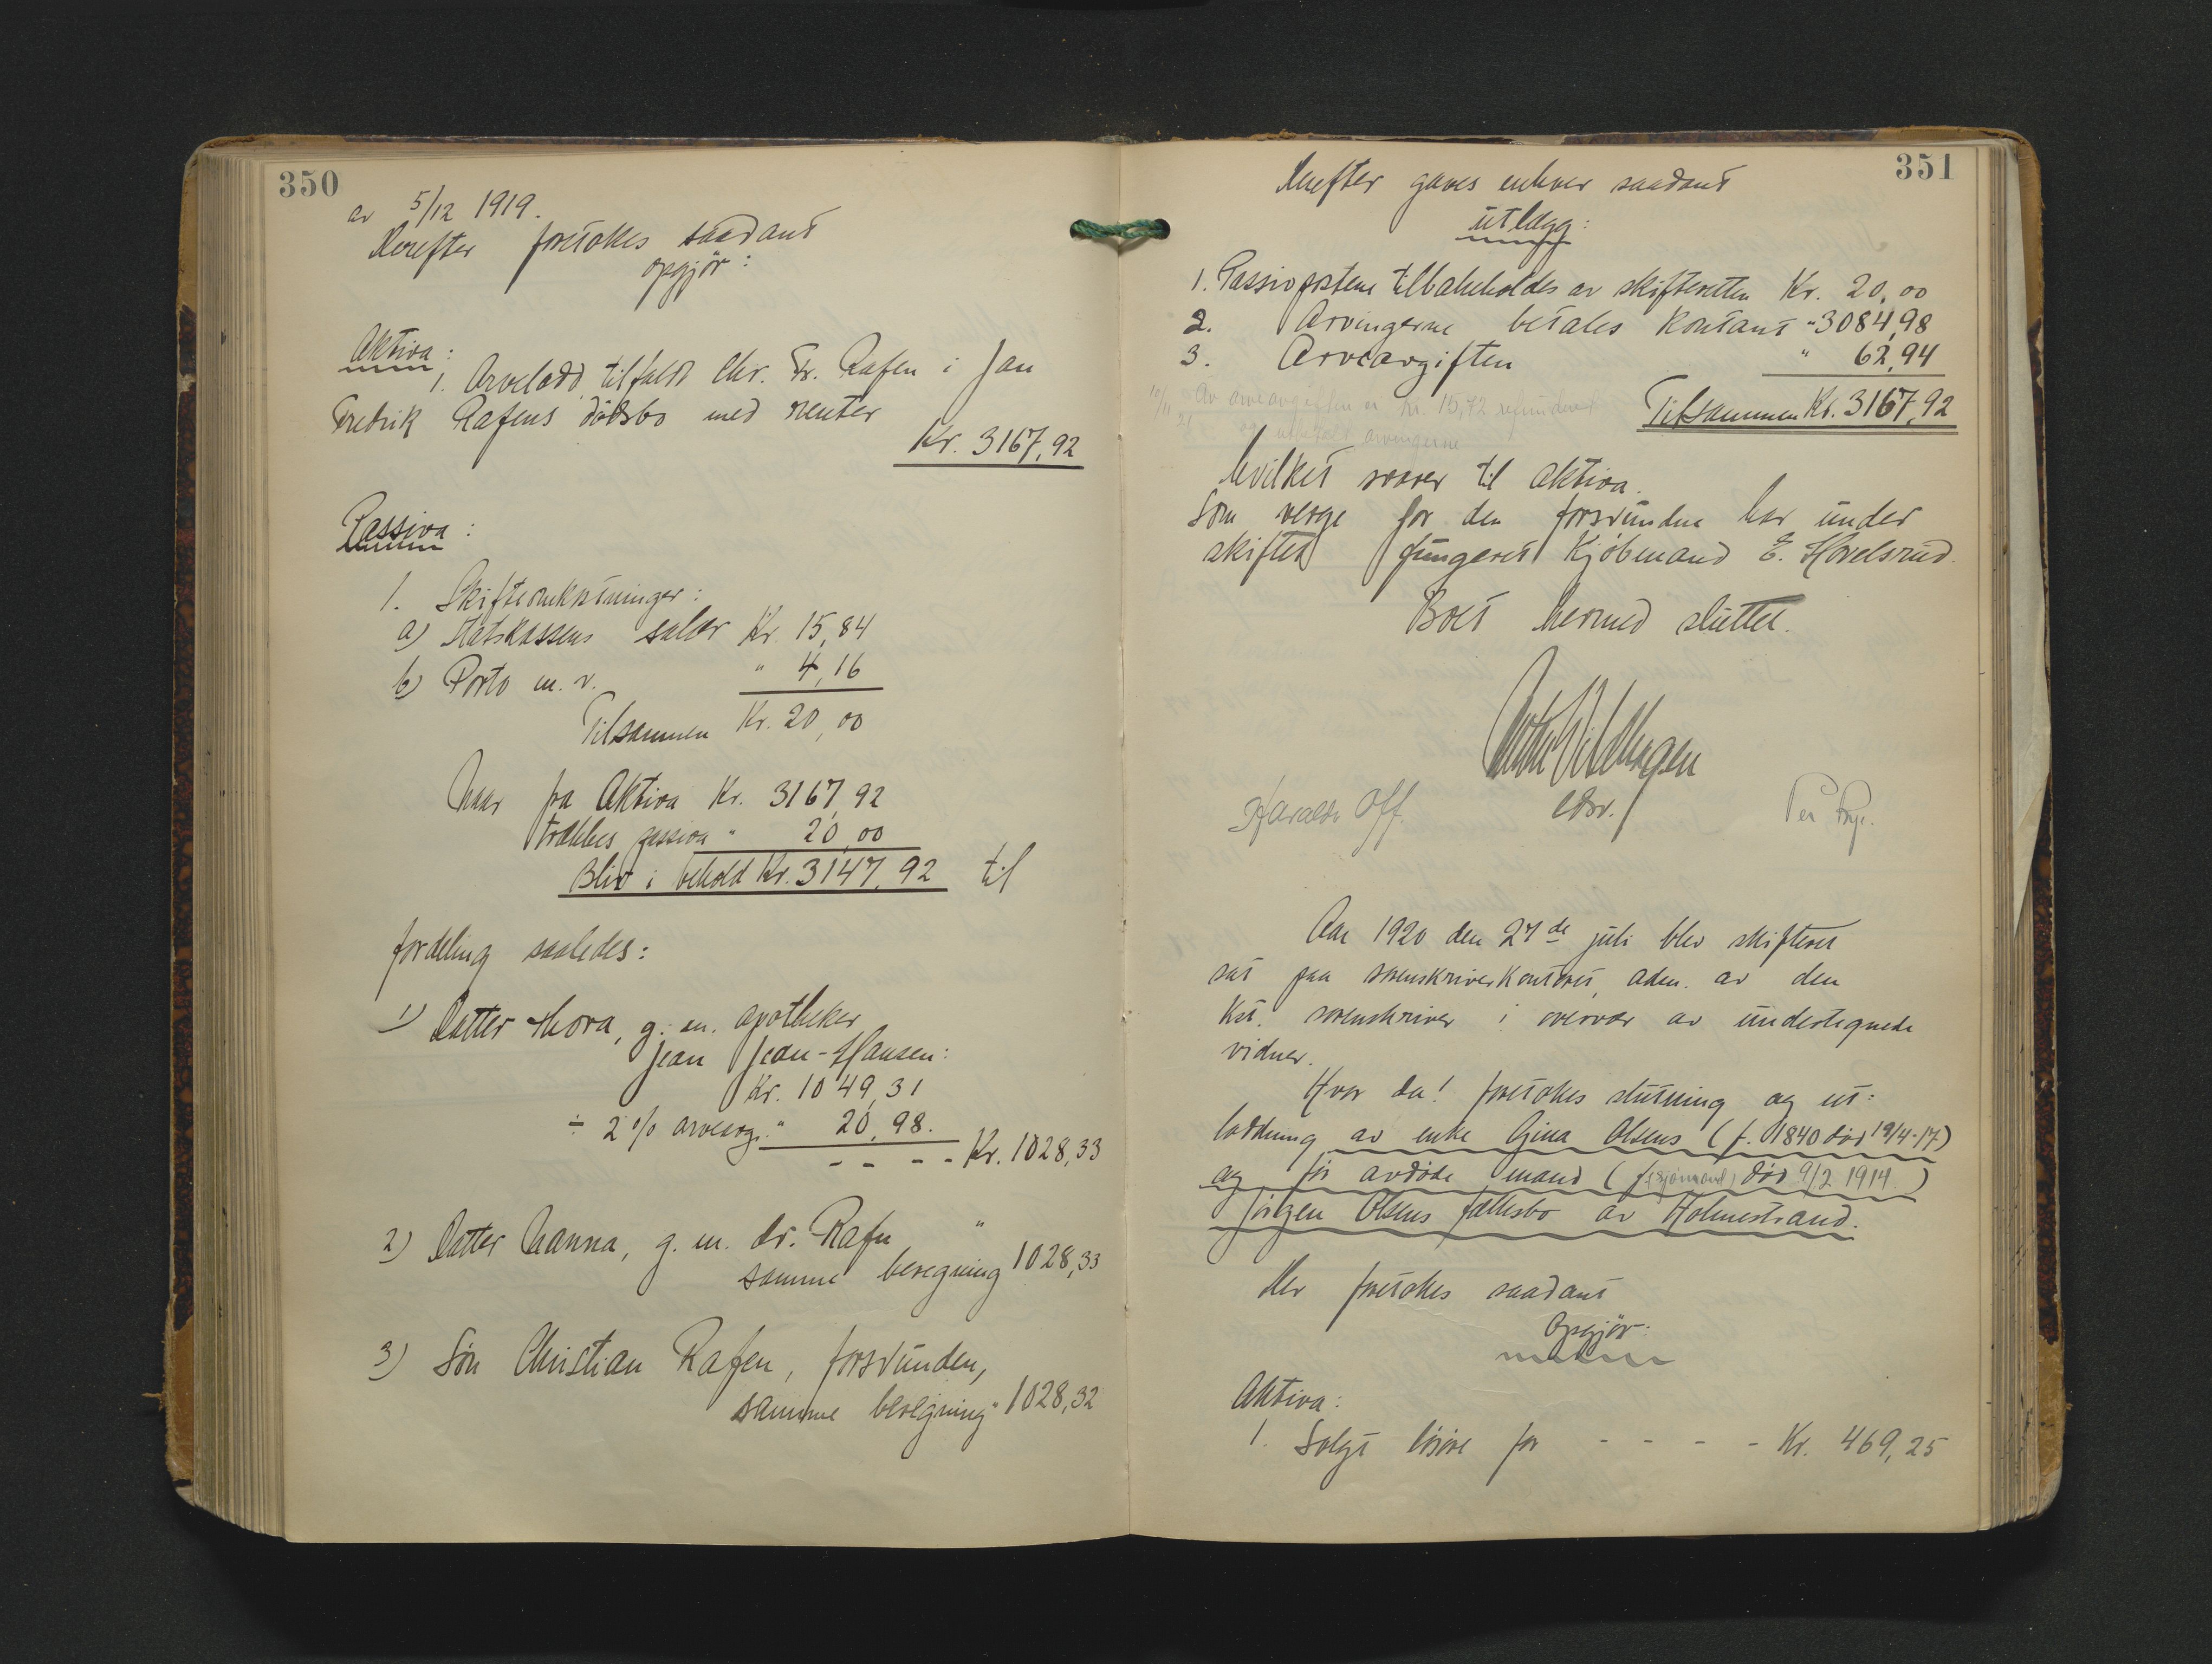 350
av 5/12 1919.
Derefter foretokes saadant
opgjör:
Aktiva:
1. Arvelodd tilfaldt Chr. Fr. Rafen i Jan
Fredrik Rafens dödsbo med renter
Kr. 3167,92
Passiva:
1. Skifteomkostninger:
a) Statskassens salær Kr. 15,84
b) Porto m. v. " 4,16
Tilsammen Kr. 20,00
Naar fra Aktiva Kr. 3167,92
trækkes passiva " 20,00
Bliv i behold Kr. 3147,92 til
fordeling saaledes:
1) Datter Thora, g. m. apotheker
Jean Jean-Hansen:
Kr. 1049,31
÷ 2 % arveavg. " 20,98.
- - - - Kr. 1028,33
2) Datter Nanna, g. m. dr. Rafn "
samme beregning 1028,33
3) Sön Christian Rafen, forsvunden,
samme beregning " 1028,32
351
Derefter gaves enhver saadant
utlægg:
1. Passivpostene tilbakeholdes av skifteretten Kr. 20,00
2. Arvingerne betales kontant " 3084,98
3. Arveavgiften " 62,94
Tilsammen Kr. 3167,92
10/11 Av arveavgiften er kr. 15,72 refunderet
21 og utbetalt arvingerne
hvilket svarer til aktiva.
Som verge for den forsvundne har under
skiftet fungeret Kjöbmand E. Hovelsrud.
Boet hermed sluttet.
Harald Off.
Aar 1920 den 27de juli blev skifteret
sat paa sorenskriverkontoret, adm. av den
kst. sorenskriver i overvær av undertegnede
vidner.
Hvor da! foretokes slutning og ut-
lodning av enke Gina Olsens (f. 1840 död 19/4-17)
og för avdöde mand (f. (sjömand) död 9/2 1914)
Jörgen Olsens fællesbo av Holmestrand.
Der foretokes saadant
Opgjör:
Aktiva:
1. Solgt lösöre for - - - - Kr. 469,25